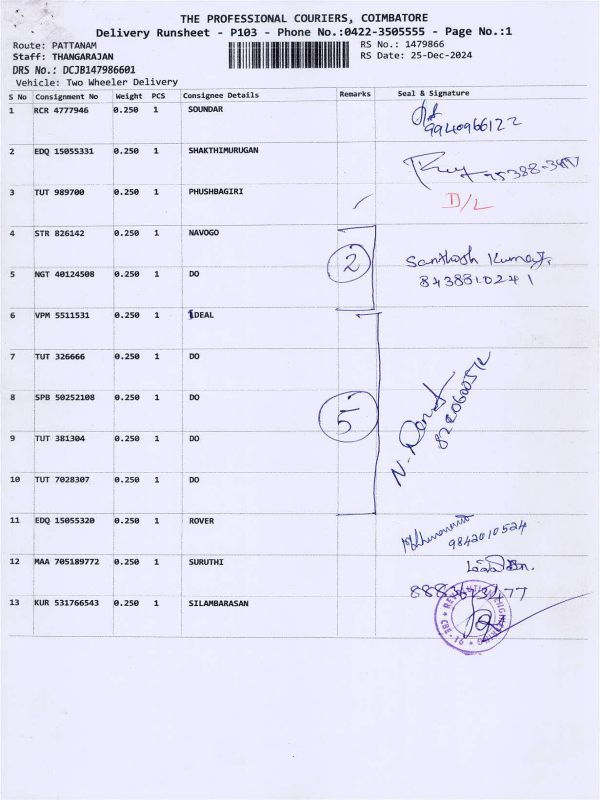 THE PROFESSIONAL COURIERS, COIMBATORE
Delivery Runsheet - P103 - Phone No.:0422-3505555 - Page No.:1
Route: PATTANAM
RS No.: 1479866
Staff: THANGARAJAN
RS Date: 25-Dec-2024
DRS No.: DCJB147986601
Vehicle: Two Wheeler Delivery
S No Consignment No Weight PCS Consignee Details Remarks Seal & Signature
1 RCR 4777946 0.250 1 SOUNDAR
9940966122
2 EDQ 15055331 0.250 1 SHAKTHIMURUGAN
3 TUT 989700 0.250 1 PHUSHBAGIRI D/L
4 STR 826142 0.250 1 NAVOGO
2 Santhosh Kumar.
5 NGT 40124508 0.250 1 DO 8438810241
6 VPM 5511531 0.250 1 IDEAL
7 TUT 326666 0.250 1 DO
8 SPB 50252108 0.250 1 DO
5
9 TUT 381304 0.250 1 DO
10 TUT 7028307 0.250 1 DO
11 EDQ 15055320 0.250 1 ROVER
9842010524
12 MAA 705189772 0.250 1 SURUTHI
13 KUR 531766543 0.250 1 SILAMBARASAN